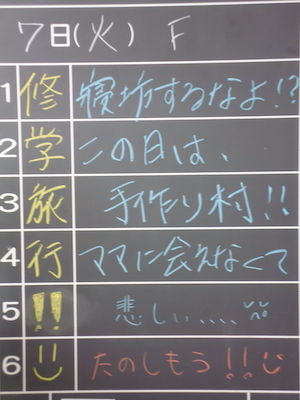 7日(火) F
1 修 寝坊するなよ!?
2 学 この日は、
3 旅 手作り村!!
4 行 ママに会えなくて
5 !! 悲しい、、、、
6 たのしもう!!